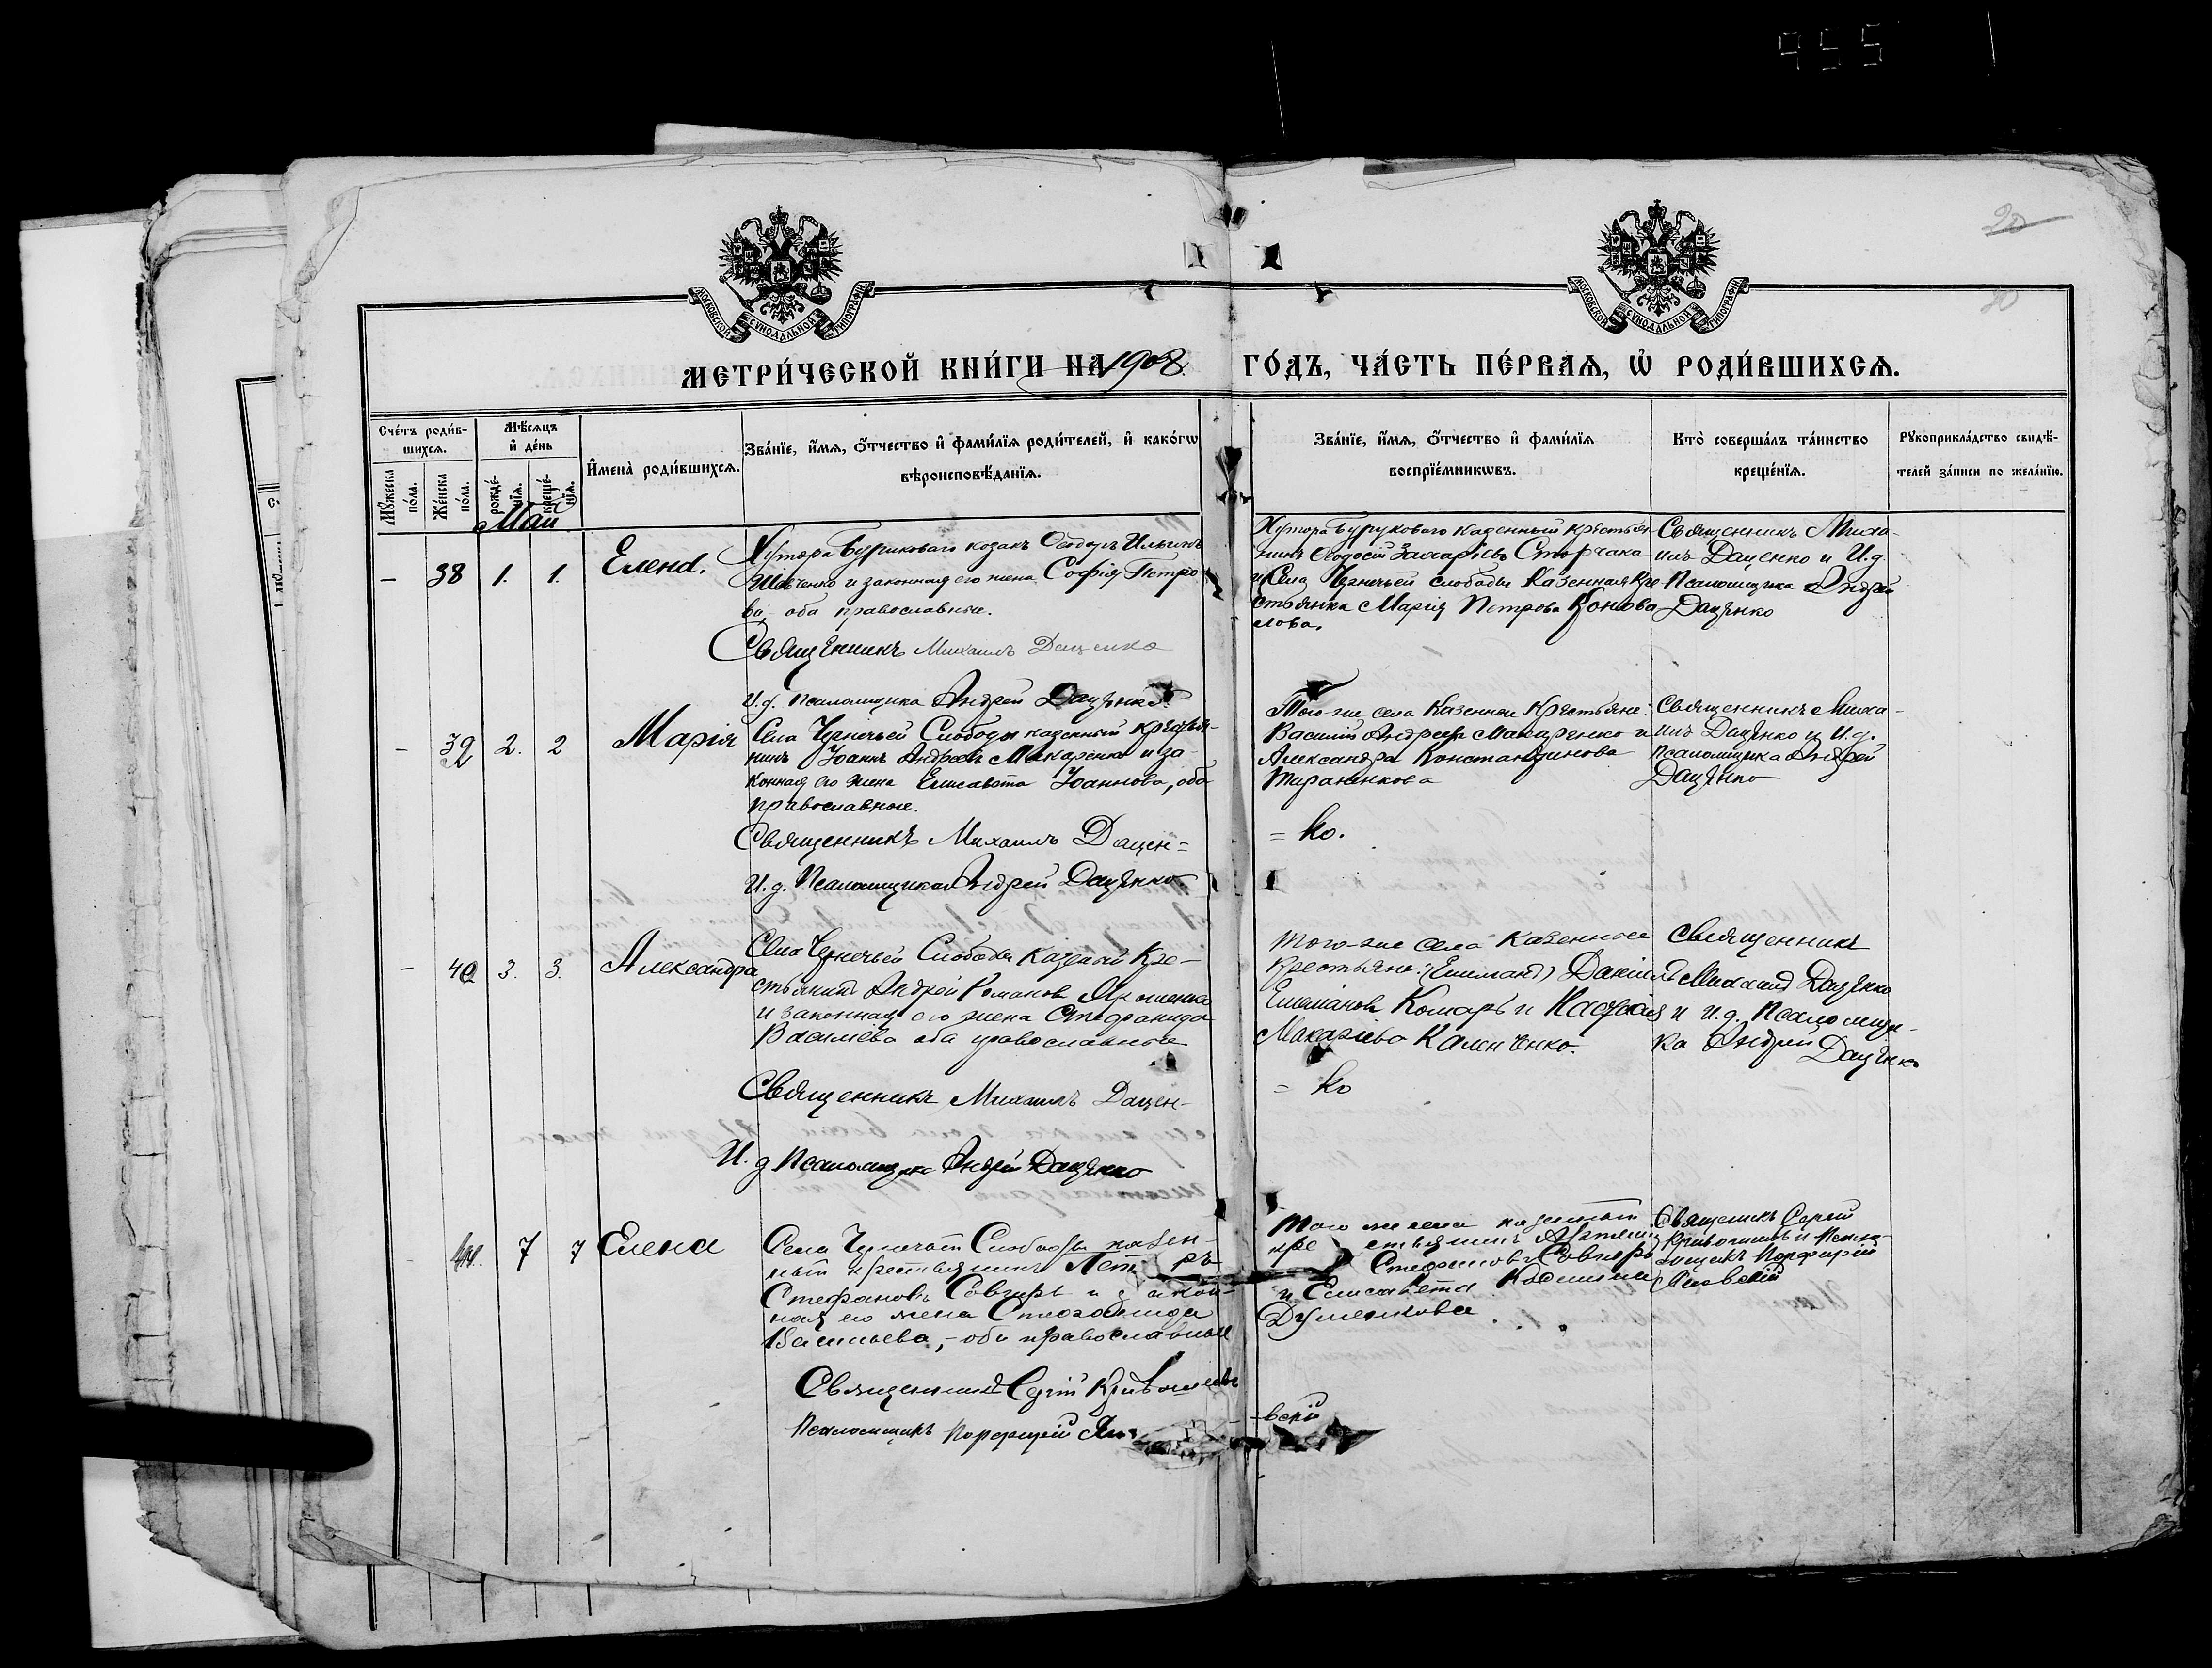 955
20
МОСКОВСКОЙ СѴНОДАЛЬНОЙ ТИПОГРАФІИ
МОСКОВСКОЙ СѴНОДАЛЬНОЙ ТИПОГРАФІИ
МЕТРИ́ЧЕСКОЙ КНИ́ГИ НА 1908 ГО́ДЪ, ЧА́СТЬ ПЕ́РВАѦ, Ѡ҆ РОДИ́ВШИХСѦ.
Сче́тъ роди́в-
шихсѧ.
Мꙋ́жеска по́ла.
Же́нска по́ла.
Мѣ́сѧцъ
и҆ де́нь
рожде́-
нїѧ.
креще́-
нїѧ.
И҆мена̀ роди́вшихсѧ.
Зва́нїе, и҆́мѧ, ѻ҆́тчество и҆ фами́лїѧ роди́телей, и҆ како́гѡ
вѣроисповѣ́данїѧ.
Зва́нїе, и҆́мѧ, ѻ҆́тчество и҆ фами́лїѧ
воспрїе́мникѡвъ.
Кто̀ соверша́лъ та́инство
креще́нїѧ.
Рꙋкоприкла́дство свидѣ́-
телей за́писи по жела́нїю.
Май
– 38 1. 1. Елена.
Хутора Бурикового козакъ Ѳеодоръ Ильинъ
Шевченко и законная его жена Софія Петро-
ва, оба православные.
Священникъ Михаилъ Даценко
И. д. псаломщика Андрей Даценко.
Хутора Бурукового казенный крестья-
нинъ Ѳеодосій Захаріевъ Сторчака
и Села Чернечьей слободы Казенная кре-
стьянка Марія Петрова Коново
лова.
Священникъ Миха-
илъ Даценко и И.д.
Псаломщика Андрей
Даценко
– 39 2. 2 Марія
Села Чернечьей Слободы казенный крестья-
нинъ Іоаннъ Андреевъ Макаренко и за-
конная его жена Елисавета Іоаннова, оба
православные.
Священникъ Михаилъ Дацен=
= ко.
И. д. Псаломщика Андрей Даценко.
Того-же села Казенные Крестьяне:
Василій Андреевъ Макаренко и
Александра Константинова
Священникъ Миха-
илъ Даценко и И.д.
псаломщика Андрей
Даценко
– 40 3. 3. Александра
Села Чернечьей Слободы Казеный Кре-
стьянинъ Андрей Романовъ Ярошенко
и законная его жена Стефанида
Василіева оба православные
Священникъ Михаилъ Дацен-
= ко
И. д Псаломщика Андрей Даценко
Того-же села Казенные
Крестьяне: Даніилъ
Комарь и
Макаріева Каленченко.
Священникъ
Михаилъ Даценко
и И.д. Псаломщи-
ка Андрей
Даценко
– 41. 7 7 Елена
Села Чернечьей Слободы казен-
ный крестьянинъ Петръ
Стефановъ Совгирь и закон-
ная его жена Стефанида
Васильева, – оба православные
Священникъ Сергій
Псаломщикъ Порфирій
-вскій
Того же села казенный
кре стьянинъ Артемій
Стефановъ Совгирь
и Елисавета Косьмина
Думенкова
Священикъ Сергій
и Псало-
мщикъ Порфирій